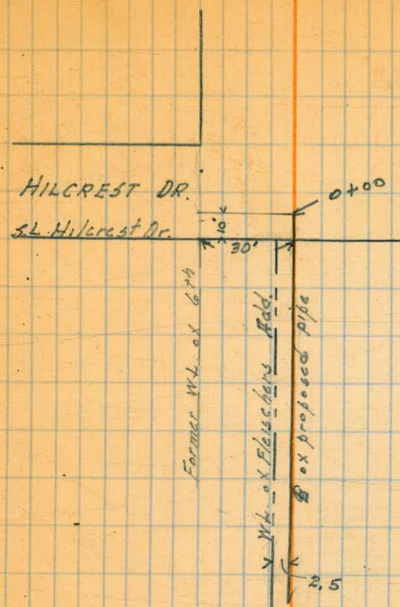 HILCREST DR.
0+00
S.L. Hilcrest Dr.
10'
30'
Former W.L. of 6th
W.L. of Fleischers Add.
℄ of proposed pipe
2.5